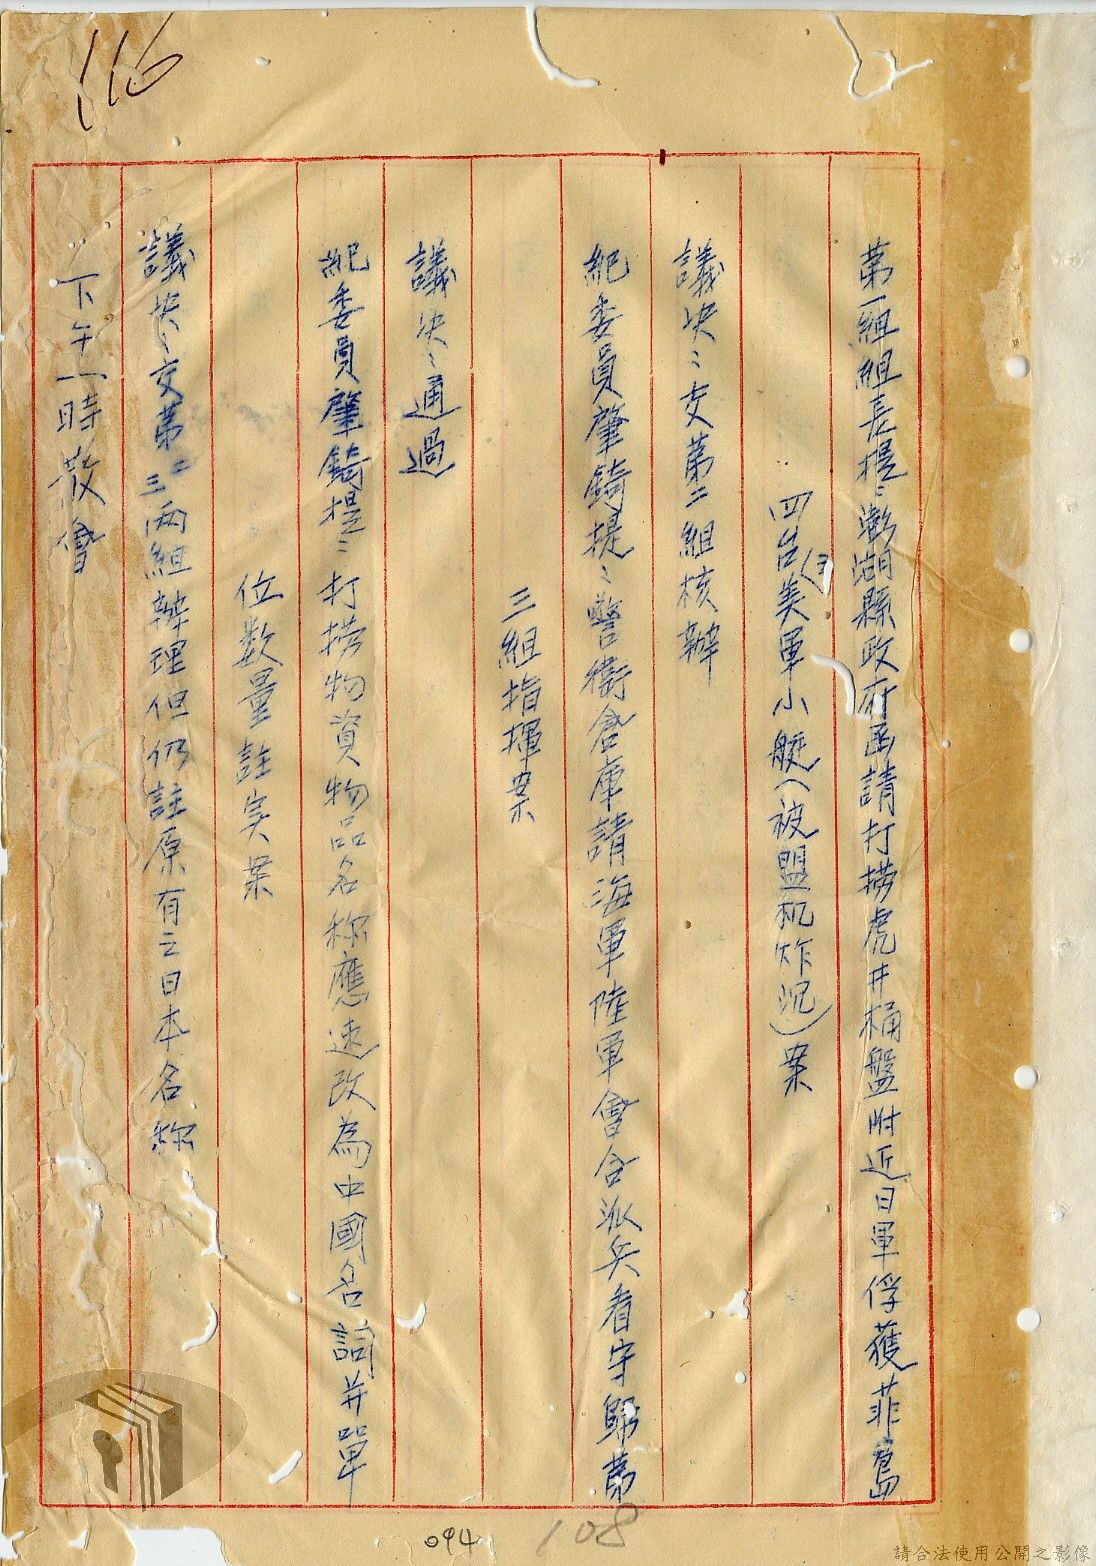 116
第一組組長提：澎湖縣政府函請打撈虎井桶盤附近日軍俘獲菲島
四台美軍小艇（被盟机炸沉）案
議决：交第二組核辦
紀委員肇錡提：警衛倉庫請海軍陸軍會合派兵看守歸第
三組指揮案
議决：通過
紀委員肇錡提：打捞物資物品名称應速改為中國名詞并單
位数量註实案
議决：交第二三两組辦理但仍註原有之日本名称
下午一時散會
094
108
請合法使用公開之影像